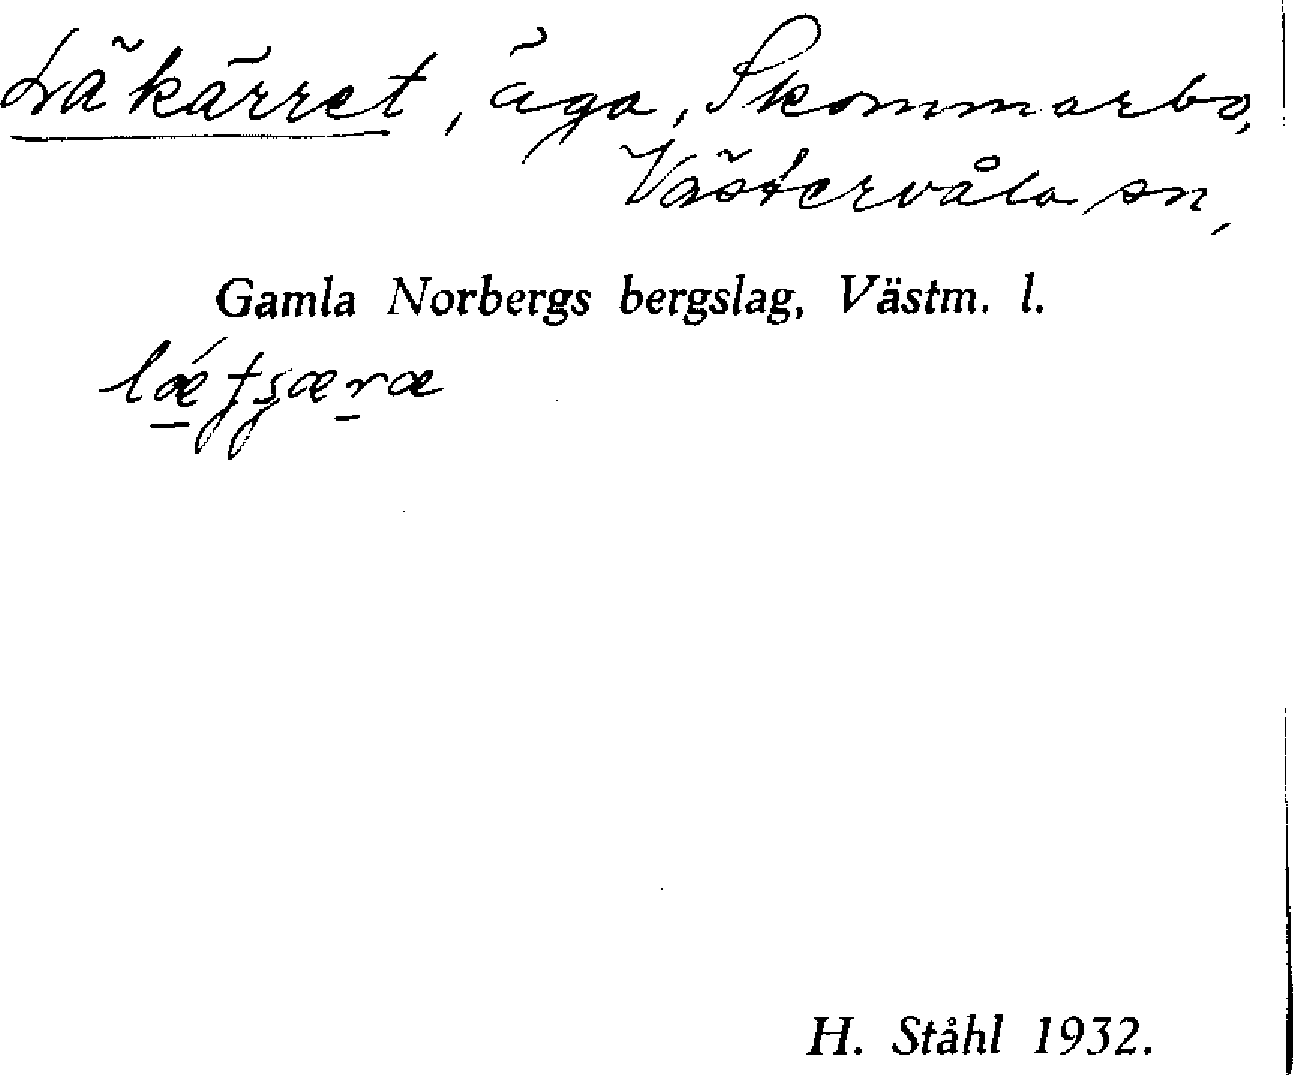 Läkärret, äga, Skommarbo,
Västervåla sn,
Gamla Norbergs bergslag, Västm. l.
H. Ståhl 1932.